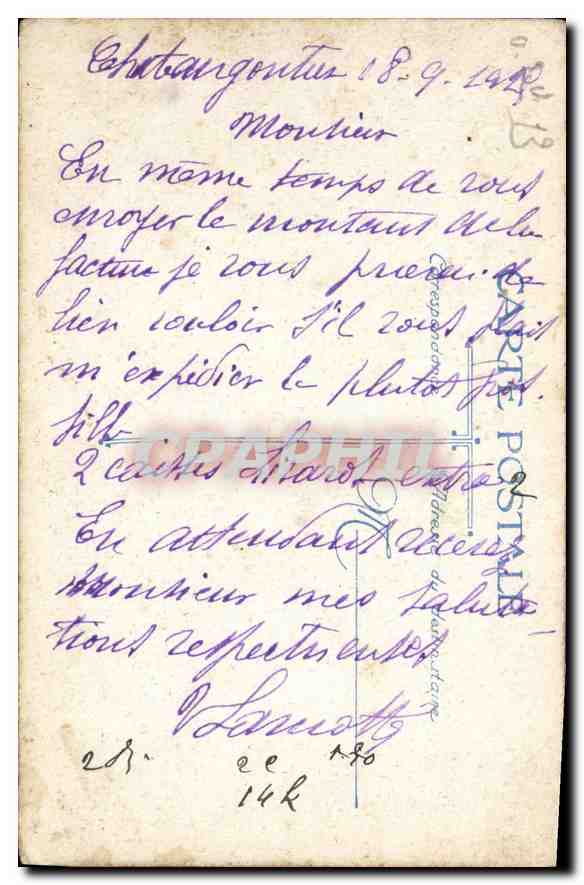 Chateaugontier 18-9-192
Monsieur
En même temps de vous
envoyer le montant de la
facture je vous prierai de
bien vouloir s'il vous plait
m'expédier le plutot pos
sible
2 caisses extra 2
En attendant recevez
monsieur mes saluta
tions respectueuses
Lamotte
CARTE POSTALE
Correspondance
Adresse du destinataire
CPAPHIL
13
2 c
14 k